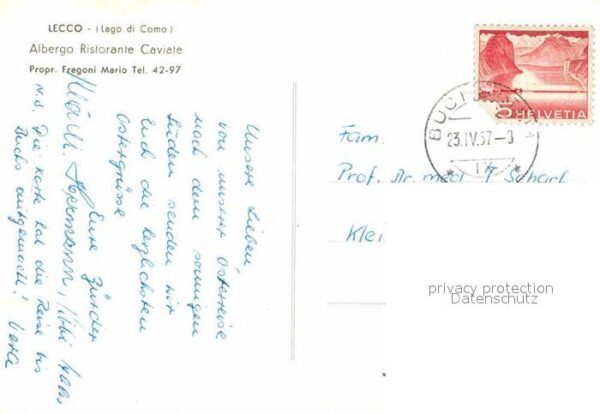 LECCO - (Lago di Como)
Albergo Ristorante Caviate
Propr. Fregoni Mario Tel. 42-97
Unsere Lieben,
von unserer Osterreise
nach dem sonnigen
Süden senden wir
Euch die herzlichsten
Ostergrüsse
Eure Zürcher
Hermann,
N.B. Die Karte hat die Reise bis
Buchs mitgemacht! Vera
HELVETIA
BUCHS
23.IV.57-
IX
Fam.
Prof. Dr. med
Klei
privacy protection
Datenschutz